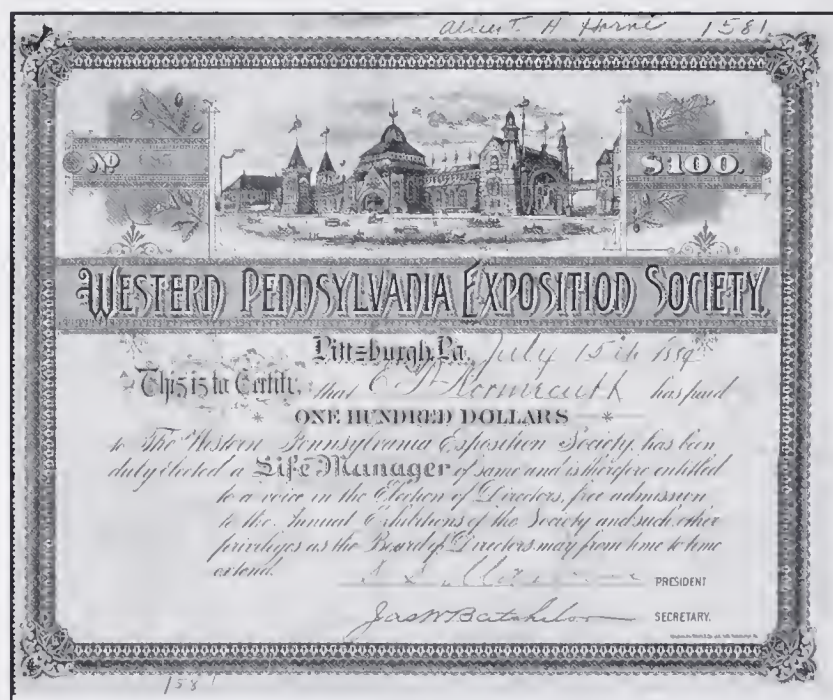 H Horne 1581
No 185 $100.
WESTERN PENNSYLVANIA EXPOSITION SOCIETY,
Pittsburgh, Pa. July 15th 1889
This is to Certify, that E. has paid
ONE HUNDRED DOLLARS
to The Western Pennsylvania Exposition Society, has been
duly elected a Life Manager of same and is therefore entitled
to a voice in the Election of Directors, free admission
to the Annual Exhibitions of the Society and such other
privileges as the Board of Directors may from time to time
extend.
PRESIDENT
Jas W Batchelor SECRETARY.
158